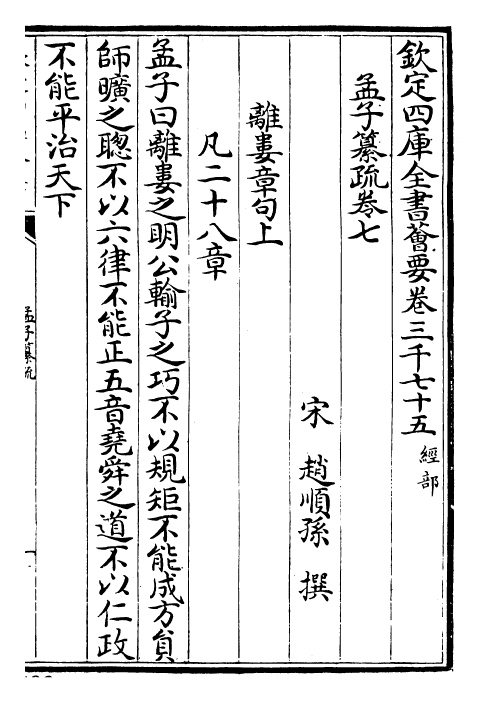 欽定四庫全書薈要卷三千七十五 經部
孟子纂疏卷七
宋 趙順孫 撰
離婁章句上
凡二十八章
孟子曰離婁之明公輸子之巧不以規矩不能成方貟
師曠之聰不以六律不能正五音堯舜之道不以仁政
不能平治天下
孟子纂疏